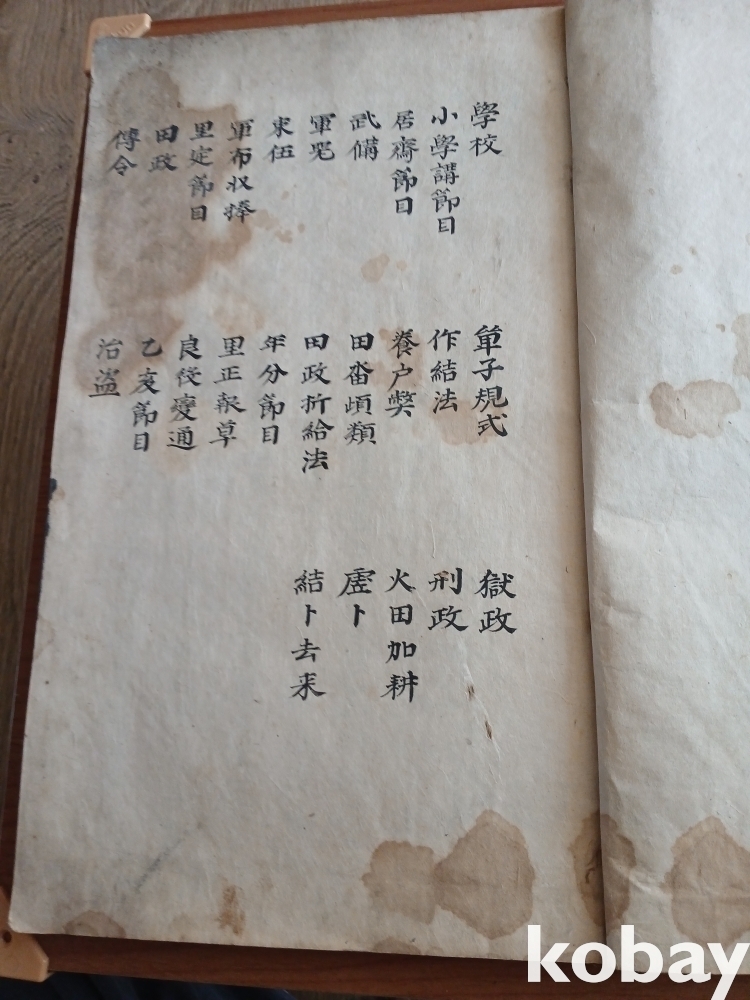 學校
小學講節目
居齋節目
武備
軍器
束伍
軍布收捧
里定節目
田政
傳令
單子規式
作結法
養户獘
田畓頉類
田政折給法
年分節目
里正報草
良役變通
乙亥節目
治盜
獄政
刑政
火田加耕
虛卜
結卜去来
kobay